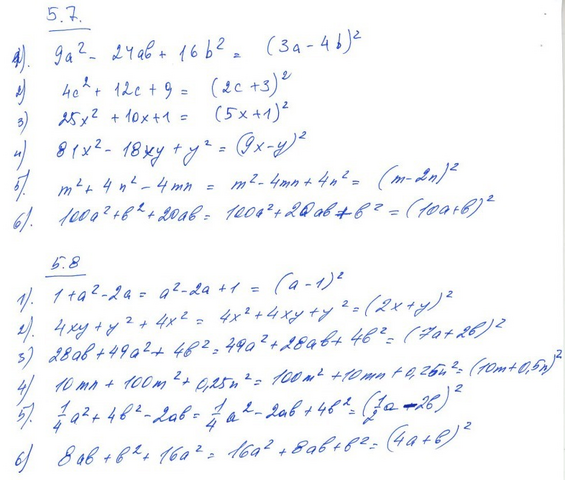 5.7.
1). 9a² - 24ab + 16b² = (3a - 4b)²
2) 4c² + 12c + 9 = (2c + 3)²
3) 25x² + 10x + 1 = (5x + 1)²
4) 81x² - 18xy + y² = (9x - y)²
5). m² + 4n² - 4mn = m² - 4mn + 4n² = (m - 2n)²
6). 100a² + b² + 20ab = 100a² + 20ab + b² = (10a + b)²
5.8
1). 1 + a² - 2a = a² - 2a + 1 = (a - 1)²
2). 4xy + y² + 4x² = 4x² + 4xy + y² = (2x + y)²
3) 28ab + 49a² + 4b² = 49a² + 28ab + 4b² = (7a + 2b)²
4) 10mn + 100m² + 0,25n² = 100m² + 10mn + 0,25n² = (10m + 0,5n)²
5). 1/4 a² + 4b² - 2ab = 1/4 a² - 2ab + 4b² = (1/2 a - 2b)²
6) 8ab + b² + 16a² = 16a² + 8ab + b² = (4a + b)²